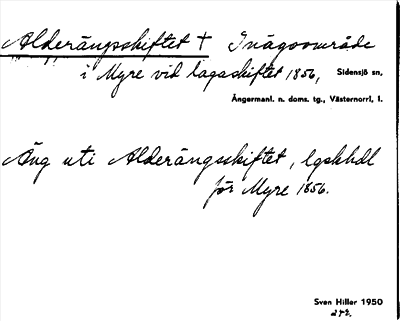 Alderängsskiftet † Inägoområde
i Myre vid lagaskiftet 1856, Sidensjö sn,
Ångermanl. n. doms. tg., Västernorrl, l.
Äng uti Alderängsskiftet, lgskhdl
för Myre 1856.
Sven Hiller 1950